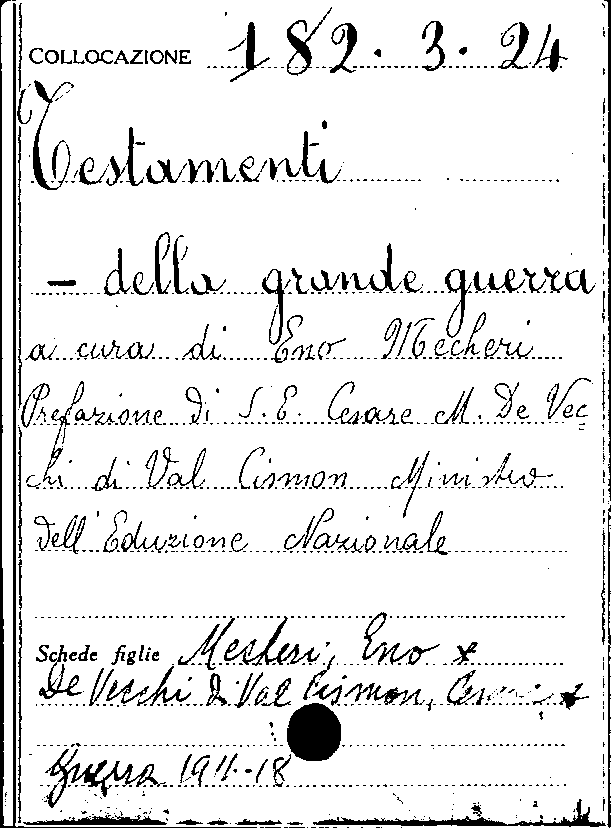 COLLOCAZIONE 182. 3. 24
Testamenti
- della grande guerra
a cura di Eno Mecheri
Prefazione di S. E. Cesare M. De Vec=
chi di Val Cismon Ministro
dell'Eduzione Nazionale
Schede figlie Mecheri, Eno x
De Vecchi di Val Cismon, x
Guerra 1911-18